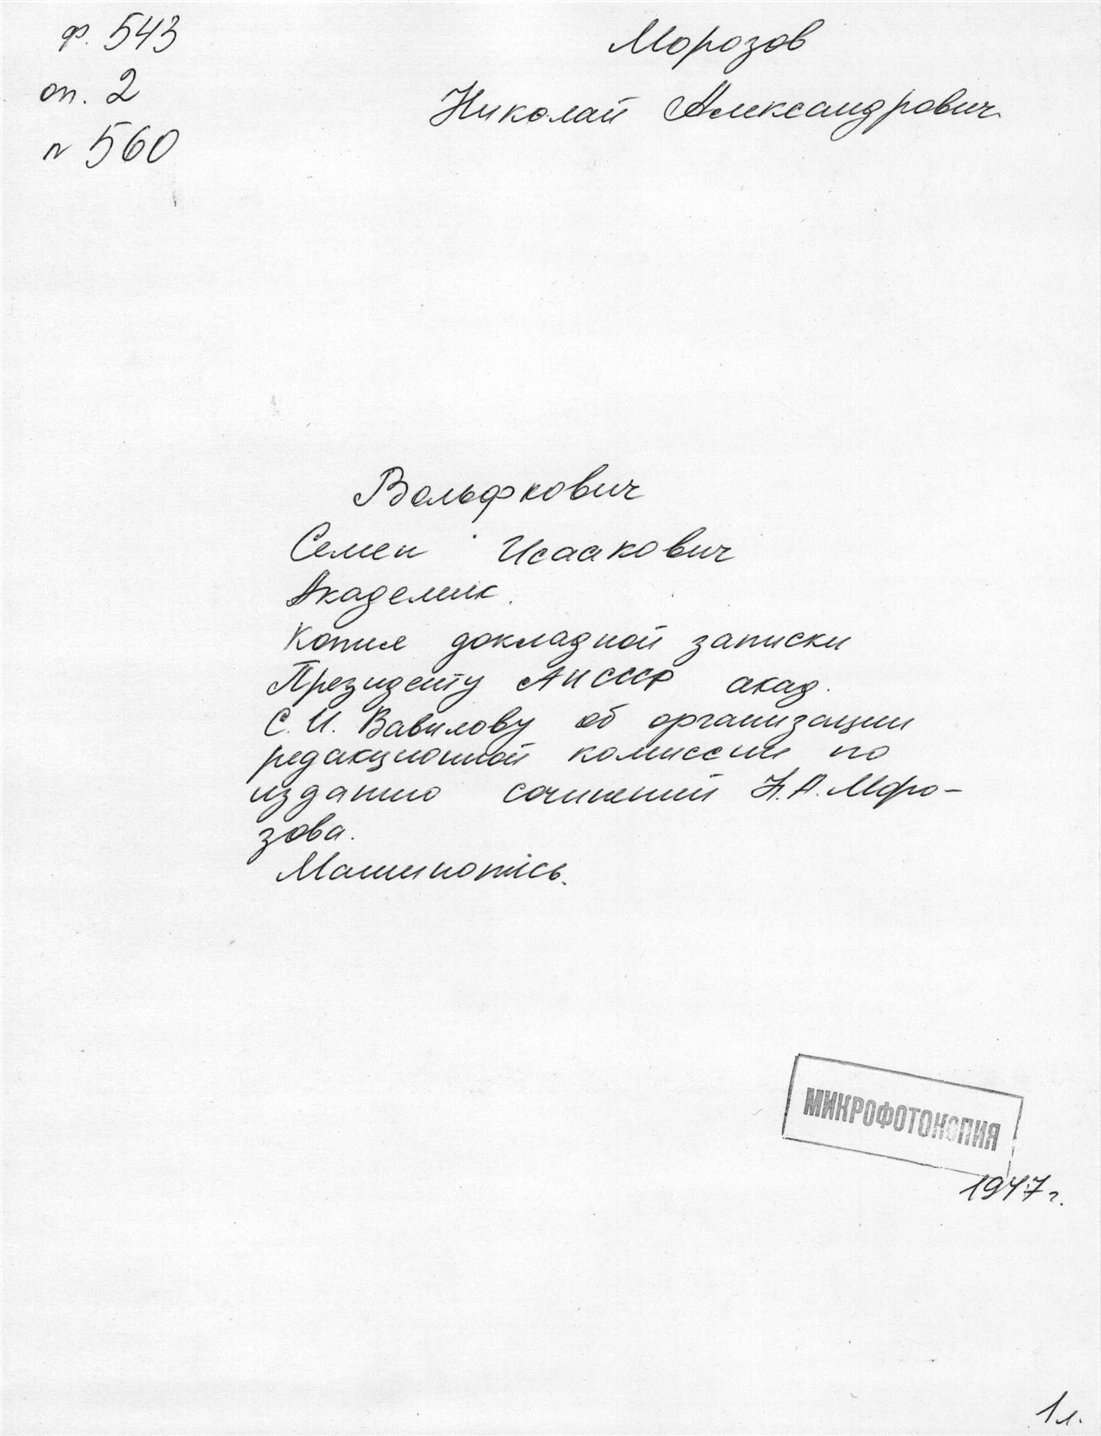 ф. 543
оп. 2
№ 560
Морозов
Николай Александрович
Вольфкович
Семен Исаакович
Академик.
Копия докладной записки
Президенту АН СССР акад.
С. И. Вавилову об организации
редакционной комиссии по
изданию сочинений Н. А. Моро-
зова.
Машинопись.
МИКРОФОТОКОПИЯ
1947 г.
1 л.